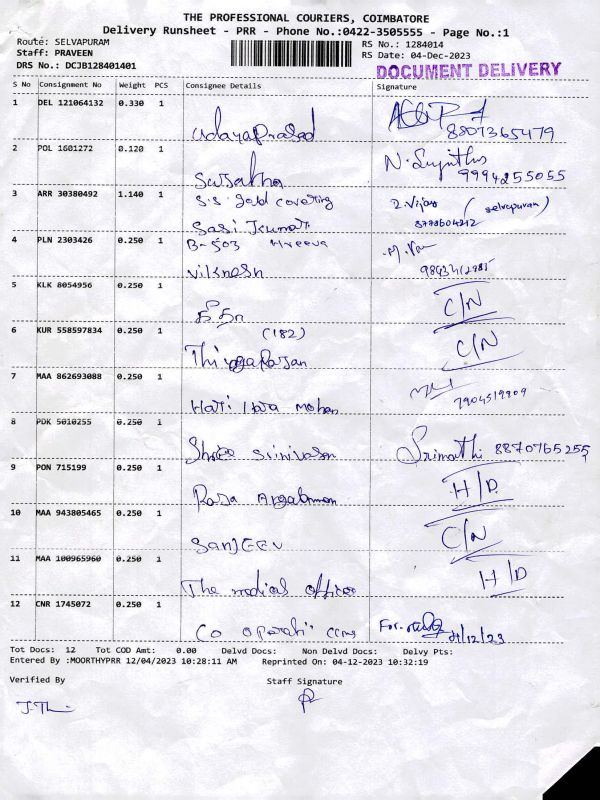 THE PROFESSIONAL COURIERS, COIMBATORE
Delivery Runsheet - PRR - Phone No.:0422-3505555 - Page No.:1
Route: SELVAPURAM
RS No.: 1284014
Staff: PRAVEEN
RS Date: 04-Dec-2023
DRS No.: DCJB128401401
DOCUMENT DELIVERY
S No Consignment No Weight PCS Consignee Details Signature
1 DEL 121064132 0.330 1
Udayaprasad 8807365479
2 POL 1601272 0.120 1
N. Sujitha
9994255055
3 ARR 30380492 1.140 1 S.S gold covering
(selvapuram)
Sasi Kumar
4 PLN 2303426 0.250 1 B-503
Viknesh
5 KLK 8054956 0.250 1
C/N
6 KUR 558597834 0.250 1 (182)
Thiyagarajan C/N
7 MAA 862693088 0.250 1
7904519909
Hari Mohan
8 PDK 5010255 0.250 1
Shree Srinivasan Srimathi 8870765255
9 PON 715199 0.250 1
H/D
10 MAA 943805465 0.250 1
SANJEEV C/N
11 MAA 100965960 0.250 1
The medical officer H/D
12 CNR 1745072 0.250 1
Co operati
04/12/23
Tot Docs: 12 Tot COD Amt: 0.00 Delvd Docs: Non Delvd Docs: Delvy Pts:
Entered By :MOORTHYPRR 12/04/2023 10:28:11 AM Reprinted On: 04-12-2023 10:32:19
Verified By Staff Signature